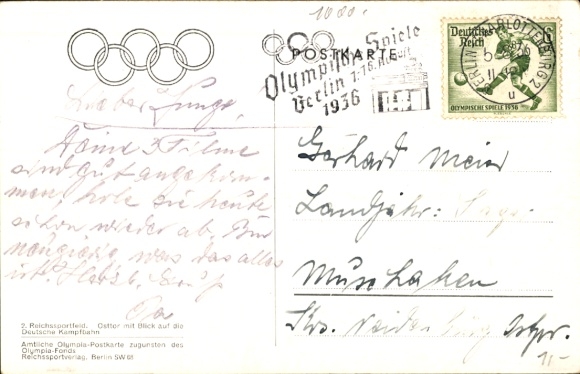 1000.-
POSTKARTE
Olympische Spiele
Berlin 1.-16. August
1936
Deutsches
Reich
OLYMPISCHE SPIELE 1936
BERLIN-CHARLOTTENBURG 2
u
Lieber Junge,
Deine 3 Filme
sind gut angekom-
men, hole sie heute
schon wieder ab. Bin
neugierig, was das alles
ist. Herzl. Gruß
Gerhard Meier
Landjahr:
Muschaken
Krs. Neidenburg Ostpr.
2. Reichssportfeld. Osttor mit Blick auf die
Deutsche Kampfbahn
Amtliche Olympia-Postkarte zugunsten des
Olympia-Fonds
Reichssportverlag, Berlin SW 68